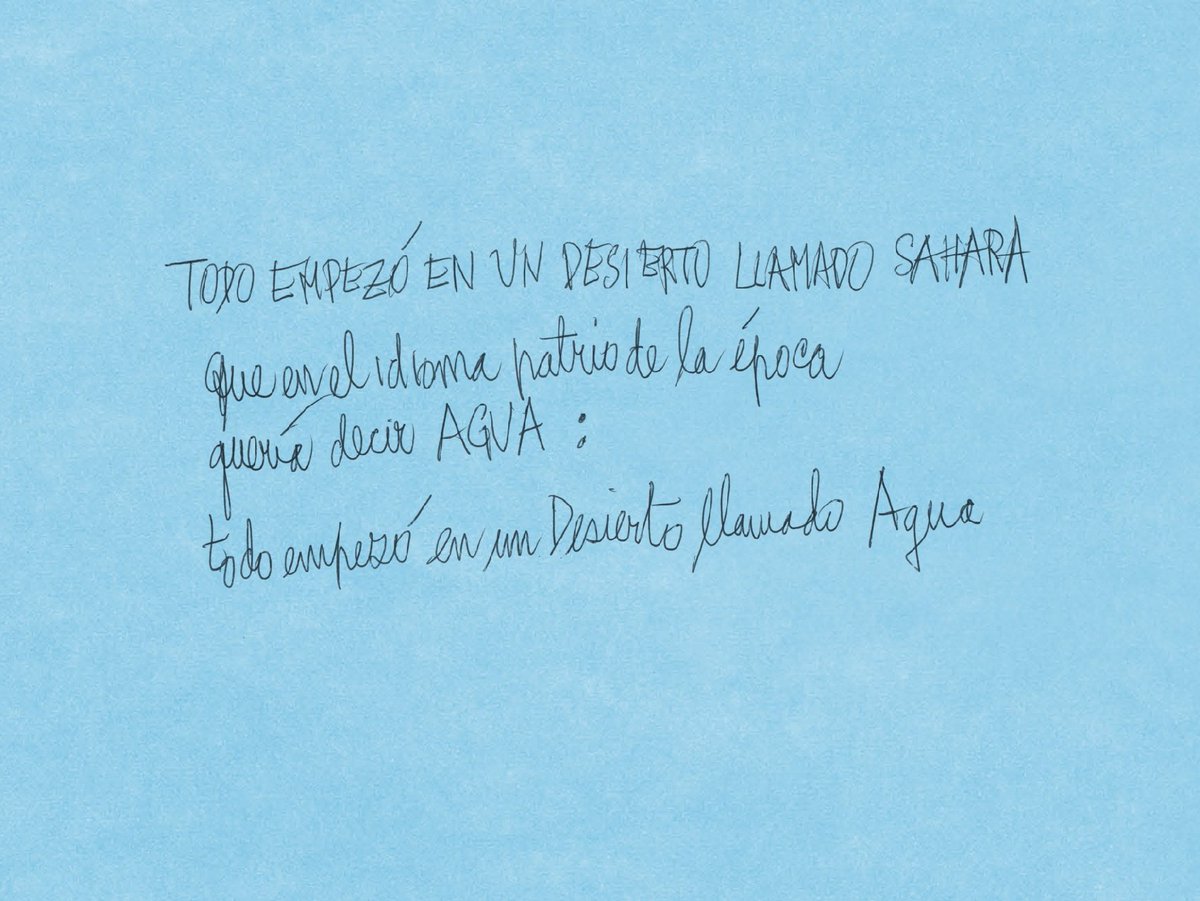 TODO EMPEZÓ EN UN DESIERTO LLAMADO SAHARA
que en el idioma patrio de la época
quería decir AGUA :
todo empezó en un Desierto llamado Agua